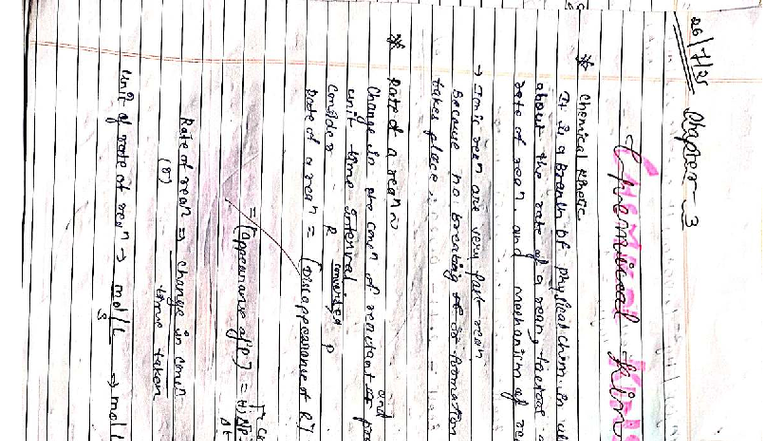 26/7/25
Chapter-3
Chemical Kin
* Chemical Kinetic
It is a branch of physical chem. in w
about the rate of a rean, factors
rate of rean. and mechanism of re
→ Ionic rean are very fast rean
Because no breaking of formation
takes place.
* Rate of a rean
Change in the concn of reactant and
unit time interval
Consider R converted P
Rate of a rean = (Disappearance of R)
= (appearance of P) = (+) ΔP
Δt
Rate of rean ⇒ change in concn
(r) time taken
Unit of rate of rean → mol/L → mol L
S